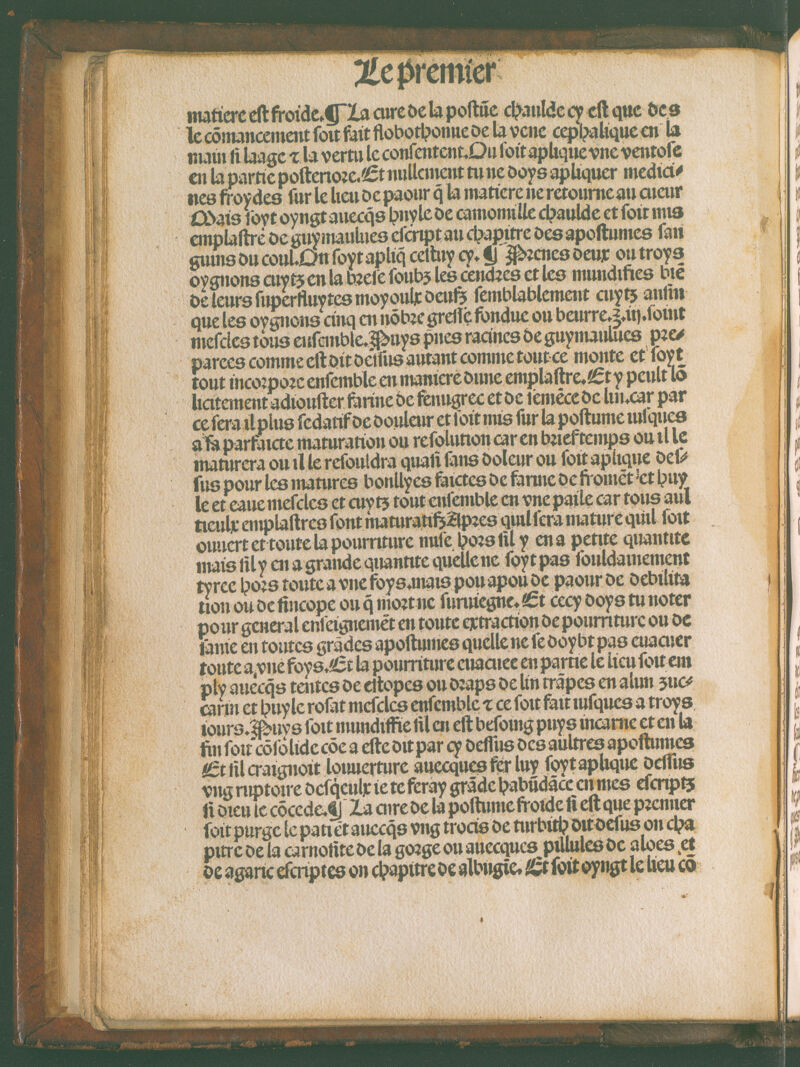 Le premier
matiere est froide. ¶ La cure de la postūe chaulde cy est que des
le cōmancement soit fait flobothonne de la vene cephalique en la
main si laage ⁊ la vertu le consentent. Ou soit aplique vne ventose
en la partie posteriore. Et nullement tu ne doys apliquer medici⸗
nes froydes sur le lieu de paour q̄ la matiere ne retourne au cueur
Mais soyt oyngt auecq̄s huyle de camomille chaulde et soit mis
emplastre de guymaulues escript au chapitre des apostumes san
guins du coul. On soyt apliq̄ cestuy cy. ¶ Prenes deux ou troys
oygnons cuytz en la brese soubz les cendres et les mundifies biē
de leurs superfluytes moyoulx deufz semblablement cuytz ausin
que les oygnons cinq en nōbre gresse fondue ou beurre.ʒ.iij.soint
mescles tous ensemble. Puys pnes racines de guymaulues pre⸗
parees comme est dit dessus autant comme tout ce monte et soyt
tout incorpore ensemble en maniere dune emplastre. Et y peult lō
licitement adiouster farine de fenugrec et de semēce de lin.car par
ce sera il plus sedatif de douleur et soit mis sur la postume iusques
a sa parfaicte maturation ou resolution car en brief temps ou il le
maturera ou il le resouldra quasi sans doleur ou soit aplique des⸗
sus pour les matures bonllyes faictes de farine de fromēt et huy
le et eaue mescles et cuytz tout ensemble en vne paile car tous aul
ticulx emplastres sont maturatifz Apres quil sera mature quil soit
ouuert et toute la pourriture mise hors sil y en a petite quantite
mais sil y en a grande quantite quelle ne soyt pas souldainement
tyree hors toute a vne foys.mais pou apou de paour de debilita
tion ou de sincope ou q̄ mort ne suruiegne. Et cecy doys tu noter
pour general enseignemēt en toute extraction de pourriture ou de
sanie en toutes grādes apostumes quelle ne se doybt pas euacuer
toute a vne foys. Et la pourriture euacuee en partie le lieu soit em
ply auecq̄s tentes de estopes ou draps de lin trāpes en alun zuc⸗
carin et huyle rosat mescles ensemble ⁊ ce soit fait iusques a troys
iours. Puys soit mundiffie sil en est besoing puys incarne et en la
fin soit cōsolide cōe a este dit par cy dessus des aultres apostumes
Et sil craignoit louuerture auecques fer luy soyt aplique dessus
vng ruptoire desq̄eulx ie te feray grāde habūdāce en mes escriptz
si dieu le cōcede. ¶ La cure de la postume froide si est que premier
soit purge le patiēt auecq̄s vng trocis de turbith dit desus on cha
pitre de la carnosite de la gorge ou auecques pillules de aloes et
de agaric escriptes on chapitre de albugīe. Et soit oyngt le lieu cō